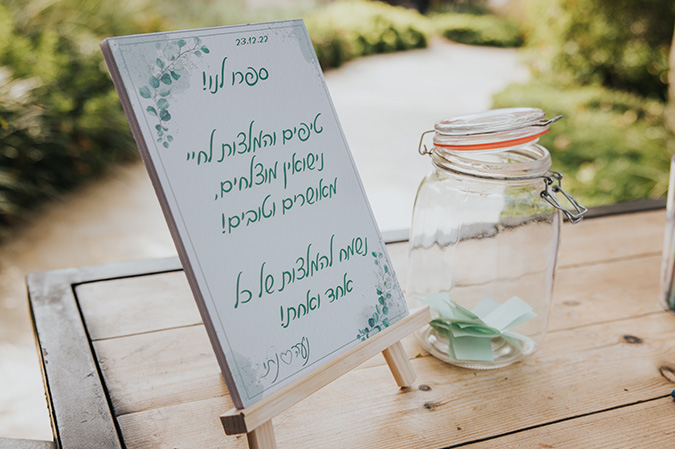 23.12.22
ספרו לנו!
טיפים והמלצות לחיי
נישואין מוצלחים,
מאושרים וטובים!
נשמח להמלצות של כל
אחד ואחת!
נועה♡נתי